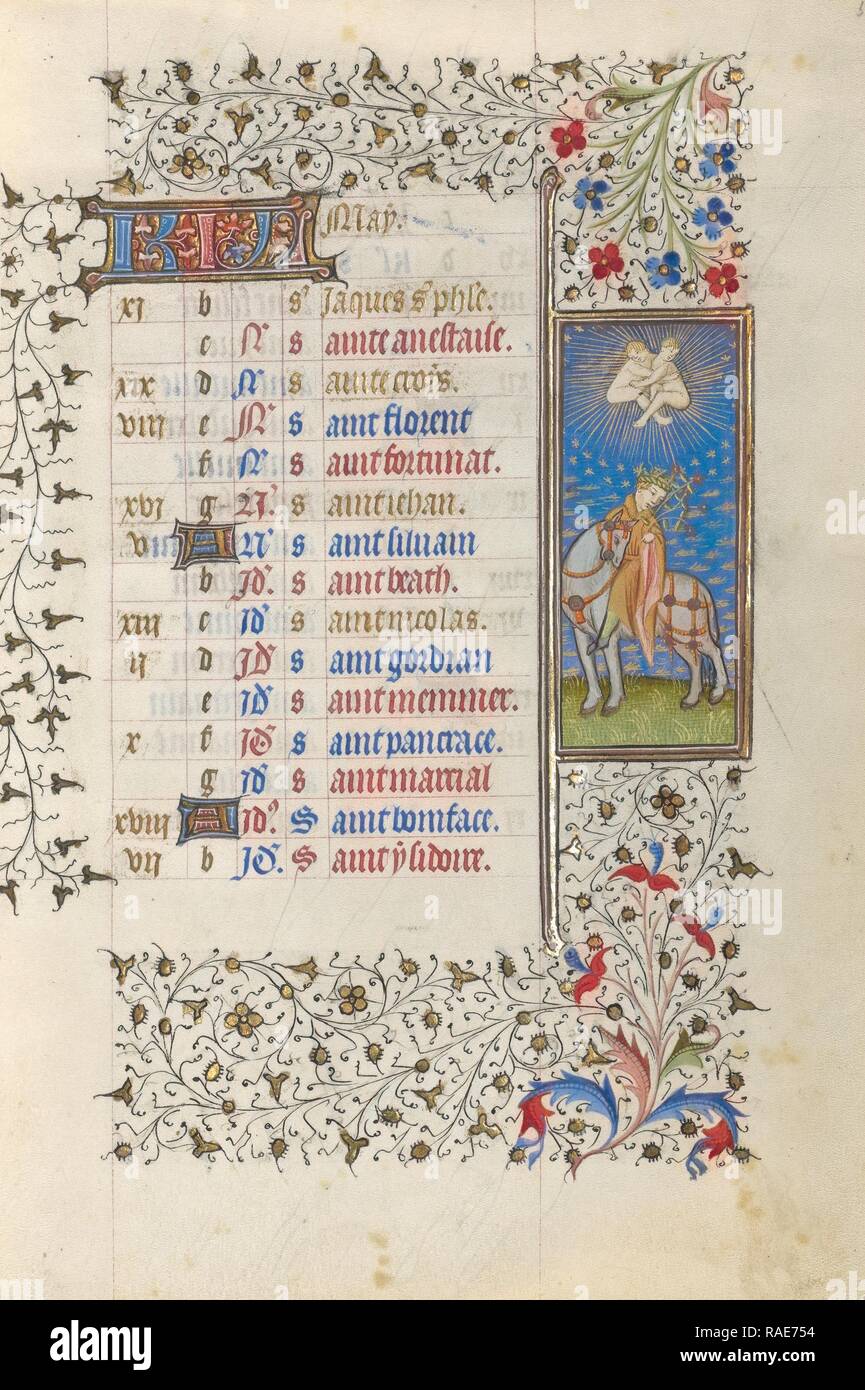 KL May.
xi b s Jaques s phle.
c N s ainte anestaise.
xix d N s ainte crois.
viii e N s aint florent
f N s aint fortunat.
xvi g N s aint iehan.
A N s aint siluain
b Id s aint beath.
xiii c Id s aint nicolas.
ii d Id s aint gordian
e Id s aint memmer.
x f Id s aint pancrace.
g Id s aint marcial
xviii A Id S aint boniface.
vii b Id. S aint ysidoire.
alamy
Image ID: RAE754
www.alamy.com